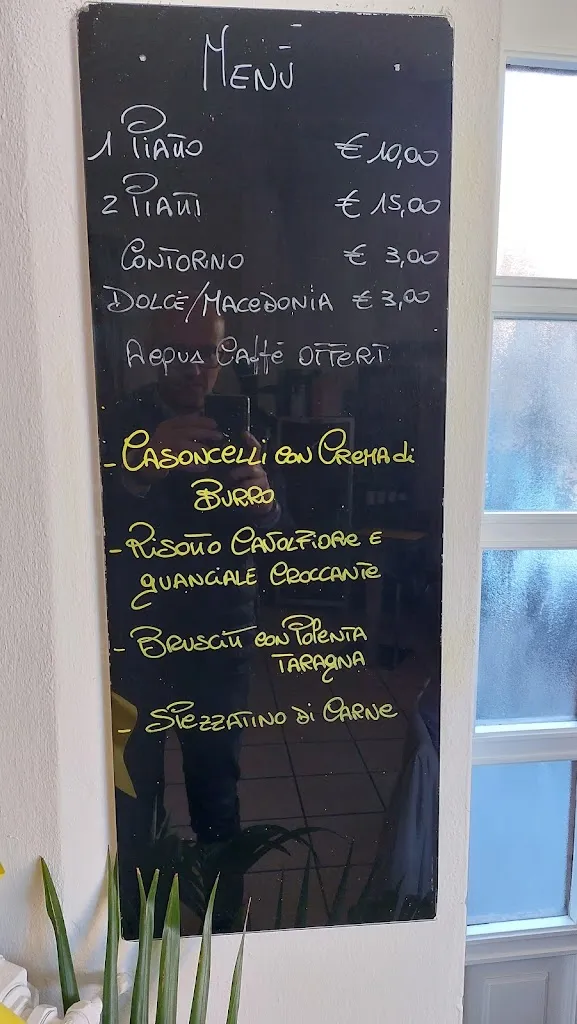 MENÙ
1 PIATTO € 10,00
2 PIATTI € 15,00
CONTORNO € 3,00
DOLCE/MACEDONIA € 3,00
ACQUA CAFFÈ OFFERTI
- CASONCELLI CON CREMA di
BURRO
- RISOTTO CAVOLFIORE E
GUANCIALE CROCCANTE
- BRUSCITT CON POLENTA
TARAGNA
- SPEZZATINO DI CARNE